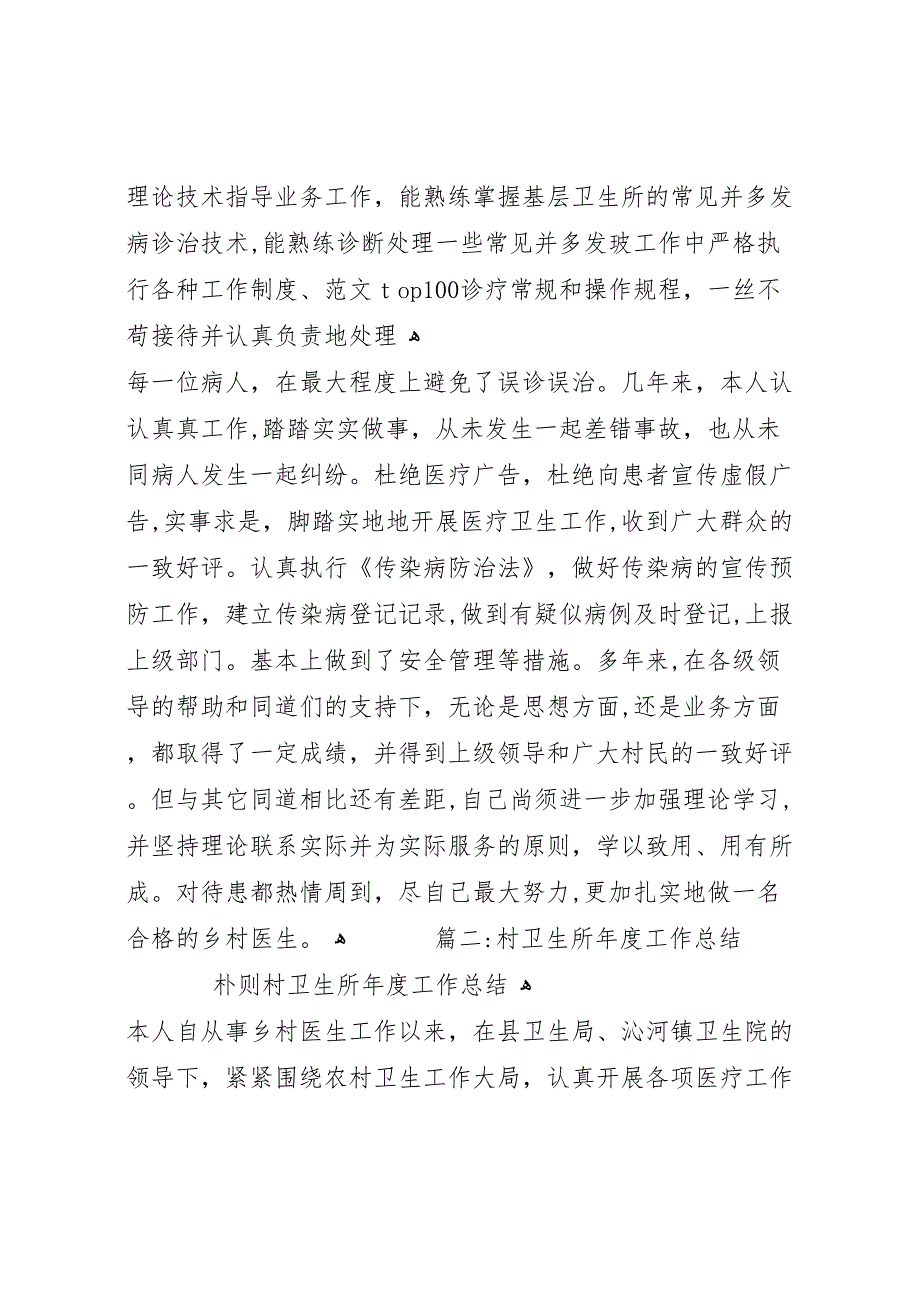 理论技术指导业务工作，能熟练掌握基层卫生所的常见并多发
病诊治技术,能熟练诊断处理一些常见并多发玻工作中严格执
行各种工作制度、范文top100诊疗常规和操作规程，一丝不
苟接待并认真负责地处理 ﻫ
每一位病人，在最大程度上避免了误诊误治。几年来，本人认
认真真工作,踏踏实实做事，从未发生一起差错事故，也从未
同病人发生一起纠纷。杜绝医疗广告，杜绝向患者宣传虚假广
告,实事求是，脚踏实地地开展医疗卫生工作,收到广大群众的
一致好评。认真执行《传染病防治法》，做好传染病的宣传预
防工作，建立传染病登记记录,做到有疑似病例及时登记,上报
上级部门。基本上做到了安全管理等措施。多年来,在各级领
导的帮助和同道们的支持下，无论是思想方面,还是业务方面
，都取得了一定成绩，并得到上级领导和广大村民的一致好评
。但与其它同道相比还有差距,自己尚须进一步加强理论学习,
并坚持理论联系实际并为实际服务的原则，学以致用、用有所
成。对待患都热情周到，尽自己最大努力,更加扎实地做一名
合格的乡村医生。 ﻫ 篇二:村卫生所年度工作总结
朴则村卫生所年度工作总结 ﻫ
本人自从事乡村医生工作以来，在县卫生局、沁河镇卫生院的
领导下，紧紧围绕农村卫生工作大局，认真开展各项医疗工作